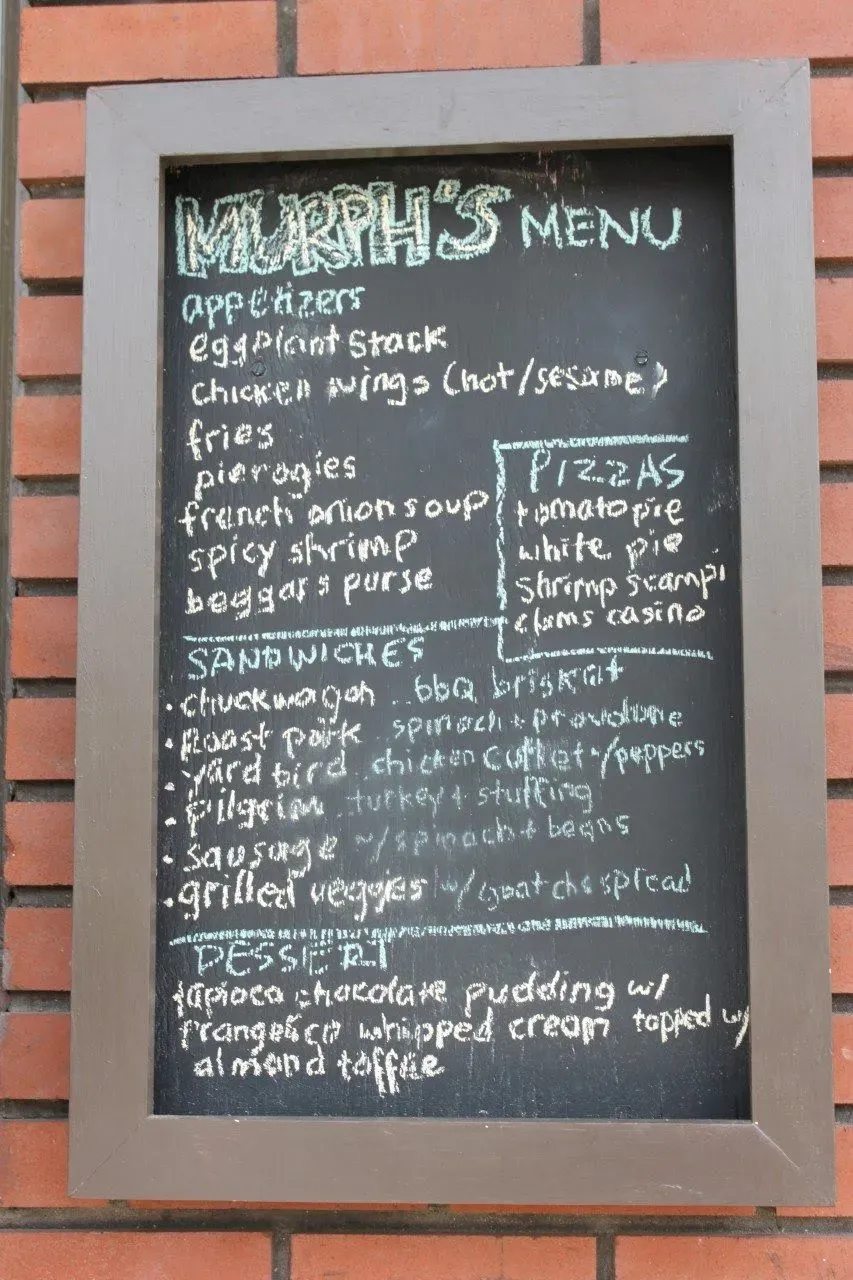 MURPH'S MENU
appetizers
eggplant stack
chicken wings (hot/sesame)
fries
pierogies
french onion soup
spicy shrimp
beggars purse
PIZZAS
tomato pie
white pie
shrimp scampi
clams casino
SANDWICHES
• chuckwagon .. bbq brisket
• Roast pork .. spinach + provolone
• yard bird .. chicken cutlet w/peppers
• pilgrim .. turkey + stuffing
• sausage w/spinach + beans
• grilled veggies w/ goat chs spread
DESSERT
tapioca chocolate pudding w/
frangelico whipped cream topped w/
almond toffee